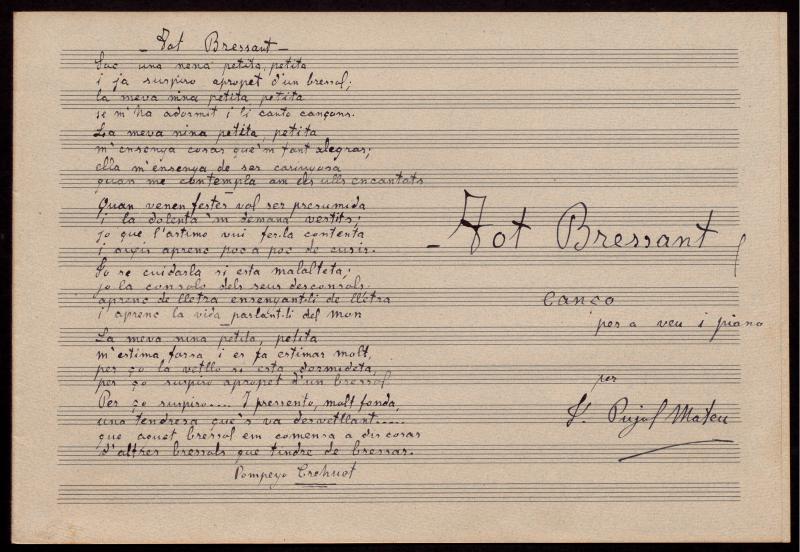 - Tot Bressant -
Soc una nena petita, petita
i ja suspiro apropet d'un bressol;
la meva nina petita petita
se m'ha adormit i li canto cançons.
La meva nina petita, petita
m'ensenya cosas que'm fant alegras;
ella m'ensenya de ser carinyosa
quan me contempla am els ulls encantats
Quan venen festes vol ser presumida
i la dolenta 'm demana vestits;
jo que l'astimo vui fer-la contenta
i aixis aprenc poc a poc de cusir.
Jo se cuidarla si esta malalteta;
jo la consolo dels seus desconsols;
aprenc de lletra ensenyant-li de lletra
i aprenc la vida parlant-li del mon
La meva nina petita, petita
m'estima forsa i es fa estimar molt,
per ço la vetllo si esta dormideta,
per ço suspiro apropet d'un bressol
Per ço suspiro.... I pressento, molt fonda,
una tendresa que's va desvetllant.....
que aquet bressol em comensa a dir cosas
d'altres bressols que tindre de bressar.
Pompeyo Crehuet
- Tot Bressant
Canço
per a veu i piano
per
F. Pujol Mateu